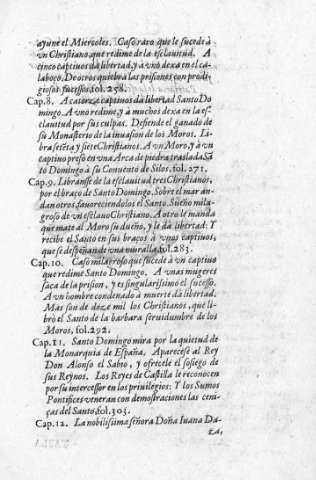 ayune el Miercoles. Caso raro que le sucede à
vn Christiano, que redime de la esclauitud. A
cinco captiuos dà libertad, y à vno dexa en el ca-
laboço. De otros quiebra las prisiones con prodi-
giosos sucessos. fol. 258.
Cap. 8. A catorze captiuos dà libertad Santo Do
mingo. A vno redime, y à muchos dexa en la es
clauitud por sus culpas. Defiende el ganado de
su Monasterio de la inuasion de los Moros. Li-
bra setēta y siete Christianos. A vn Moro, y à vn
captiuo preso en vna Arca de piedra traslada Sā
to Domingo à su Conuento de Silos, fol. 271.
Cap. 9. Libranse de la esclauitud tres Christianos,
por el braço de Santo Domingo. Sobre el mar an-
dan otros fauoreciendolos el Santo. Sueño mila-
groso de vn esclauo Christiano. A otro le manda
que mate al Moro su dueño, y le dà libertad: Y
recibe el Santo en sus braços à vnos captiuos,
que se despeñan de vna muralla. fol. 283.
Cap. 10. Caso milagroso que sucede à vn captiuo
que redime Santo Domingo. A vnas mugeres
saca de la prision, y es singularissimo el sucesso.
A vn hombre condenado a muerte dà libertad.
Mas son de doze mil los Christianos, que li-
brò el Santo de la barbara seruidumbre de los
Moros, fol. 292.
Cap. 11. Santo Domingo mira por la quietud de
la Monarquia de España. Aparecese al Rey
Don Alonso el Sabio, y ofrecele el sosiego de
sus Reynos. Los Reyes de Castilla le reconocen
por su intercessor en los priuilegios: Y los Sumos
Pontifices veneran con demostraciones las ceni-
ças del Santo, fol. 305.
Cap. 12. La nobilissima señora Doña Iuana Da-
za,